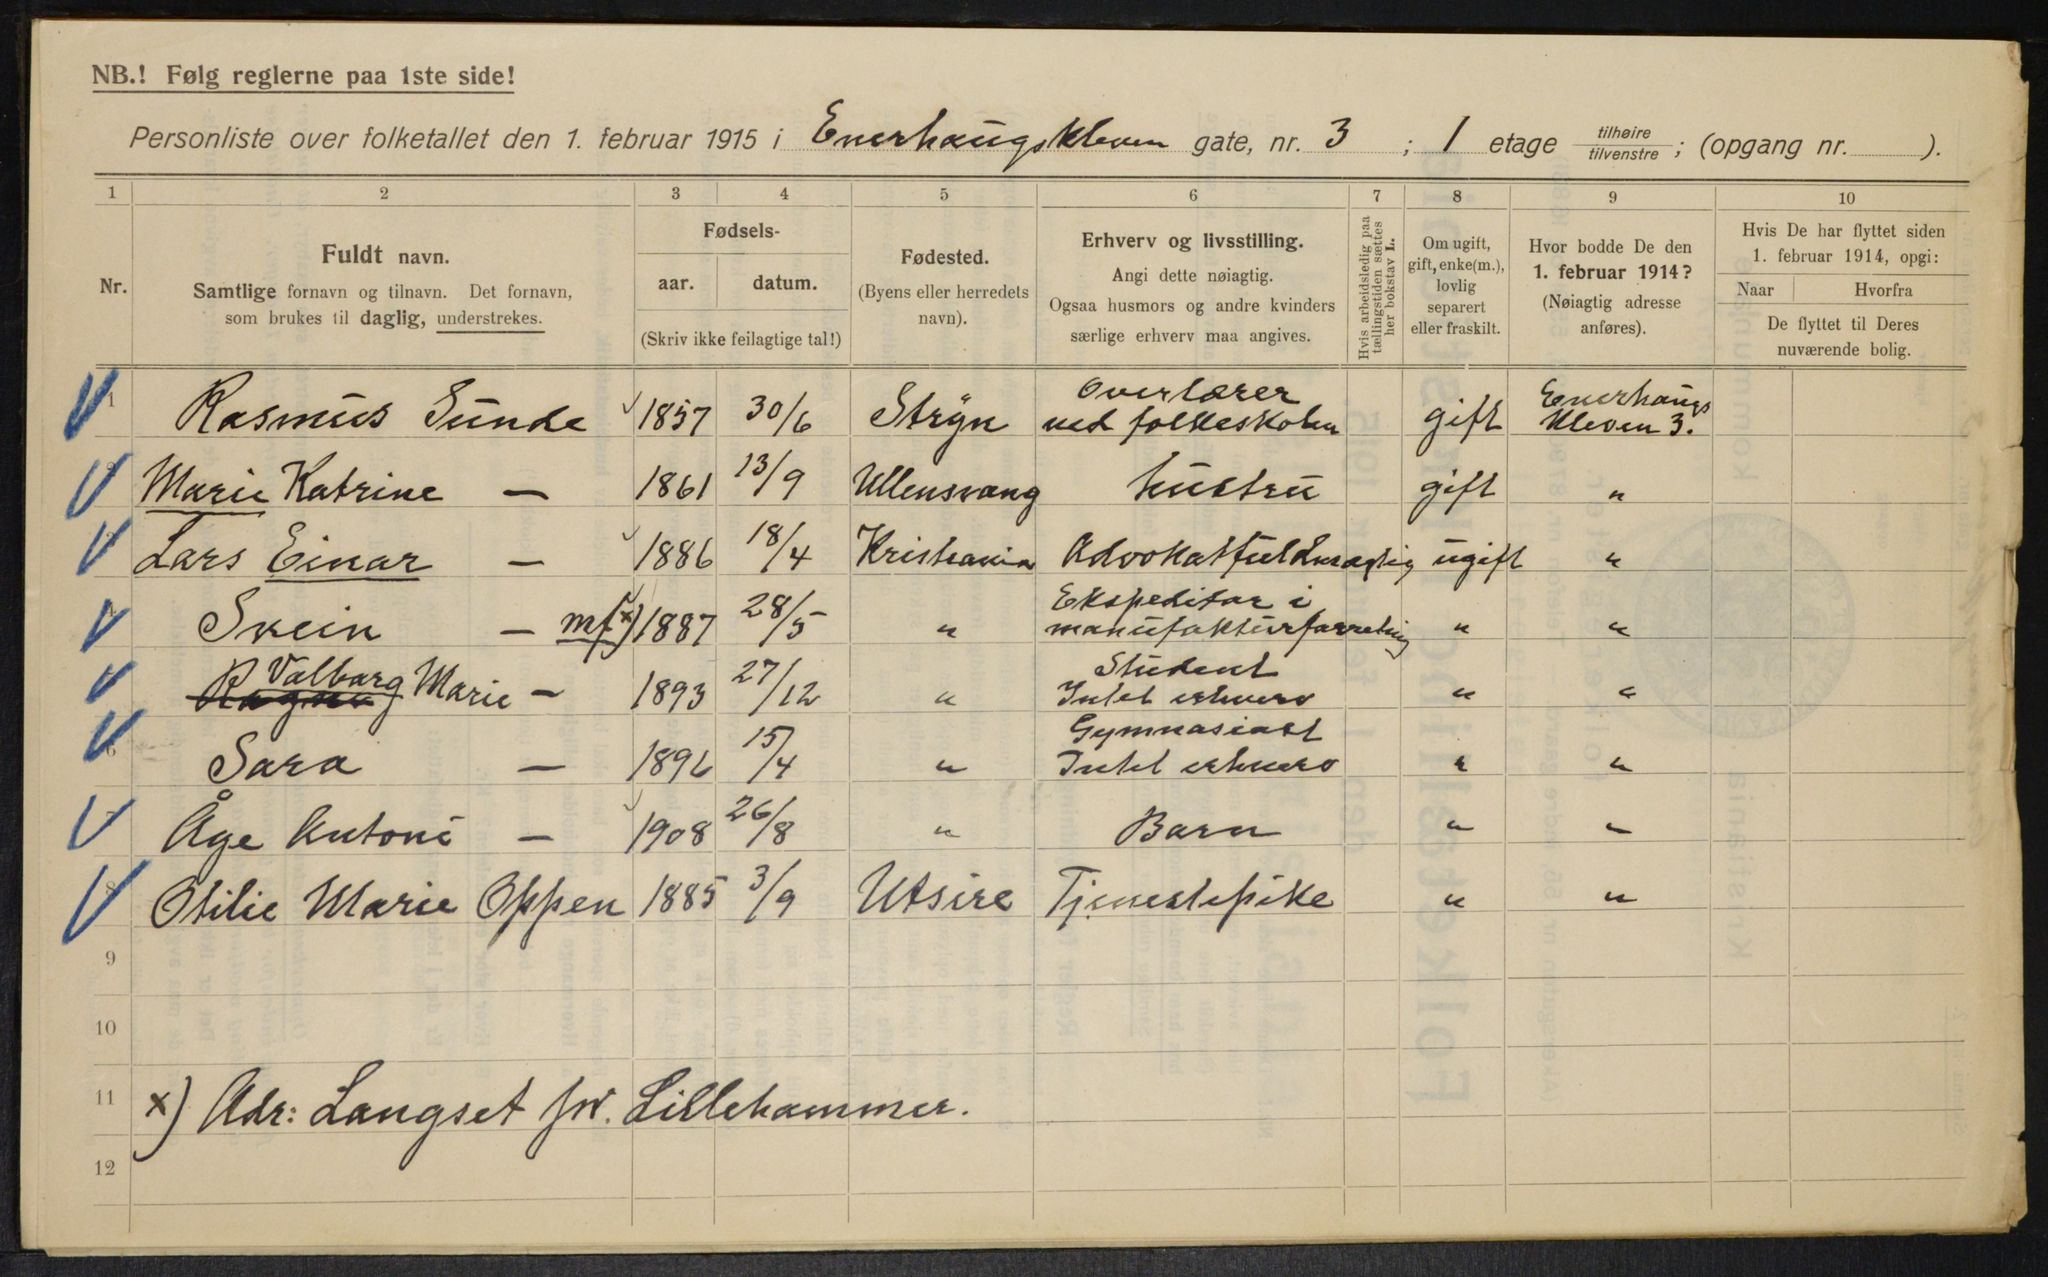 NB.! Følg reglerne paa 1ste side!
Personliste over folketallet den 1. februar 1915 i Enerhaugskleven gate, nr. 3 ; 1 etage tilhøire tilvenstre ; (opgang nr. ).
1 2 3 4 5 6 7 8 9 10
Nr.
Fuldt navn.
Samtlige fornavn og tilnavn. Det fornavn,
som brukes til daglig, understrekes.
Fødsels-
aar. datum.
(Skriv ikke feilagtige tal!)
Fødested.
(Byens eller herredets
navn).
Erhverv og livsstilling.
Angi dette nøiagtig.
Ogsaa husmors og andre kvinders
særlige erhverv maa angives.
Hvis arbeidsledig paa
tællingstiden sættes
her bokstav L.
Om ugift,
gift, enke(m.),
lovlig
separert
eller fraskilt.
Hvor bodde De den
1. februar 1914?
(Nøiagtig adresse
anføres).
Hvis De har flyttet siden
1. februar 1914, opgi:
Naar Hvorfra
De flyttet til Deres
nuværende bolig.
1 Rasmus Sunde 1857 30/6 Strÿn Overlærer ved folkeskolen gift Enerhaugs Kleven 3.
2 Marie Katrine — 1861 13/9 Ullensvang hustru gift "
3 Lars Einar — 1886 18/4 Kristiania Advokatfuldmægtig ugift "
4 Svein — mf x) 1887 28/5 " Ekspeditør i manufakturforretning " "
Ragna Valborg Marie — 1893 27/12 " Student Intet erhverv " "
6 Sara — 1896 15/4 " Gymnasiast Intet erhverv " "
7 Åge Antoni — 1908 26/8 " Barn " "
8 Otilie Marie Oppen 1885 3/9 Utsire Tjenestepike " "
9
10
11 x) Adr: Langset pr. Lillehammer.
12